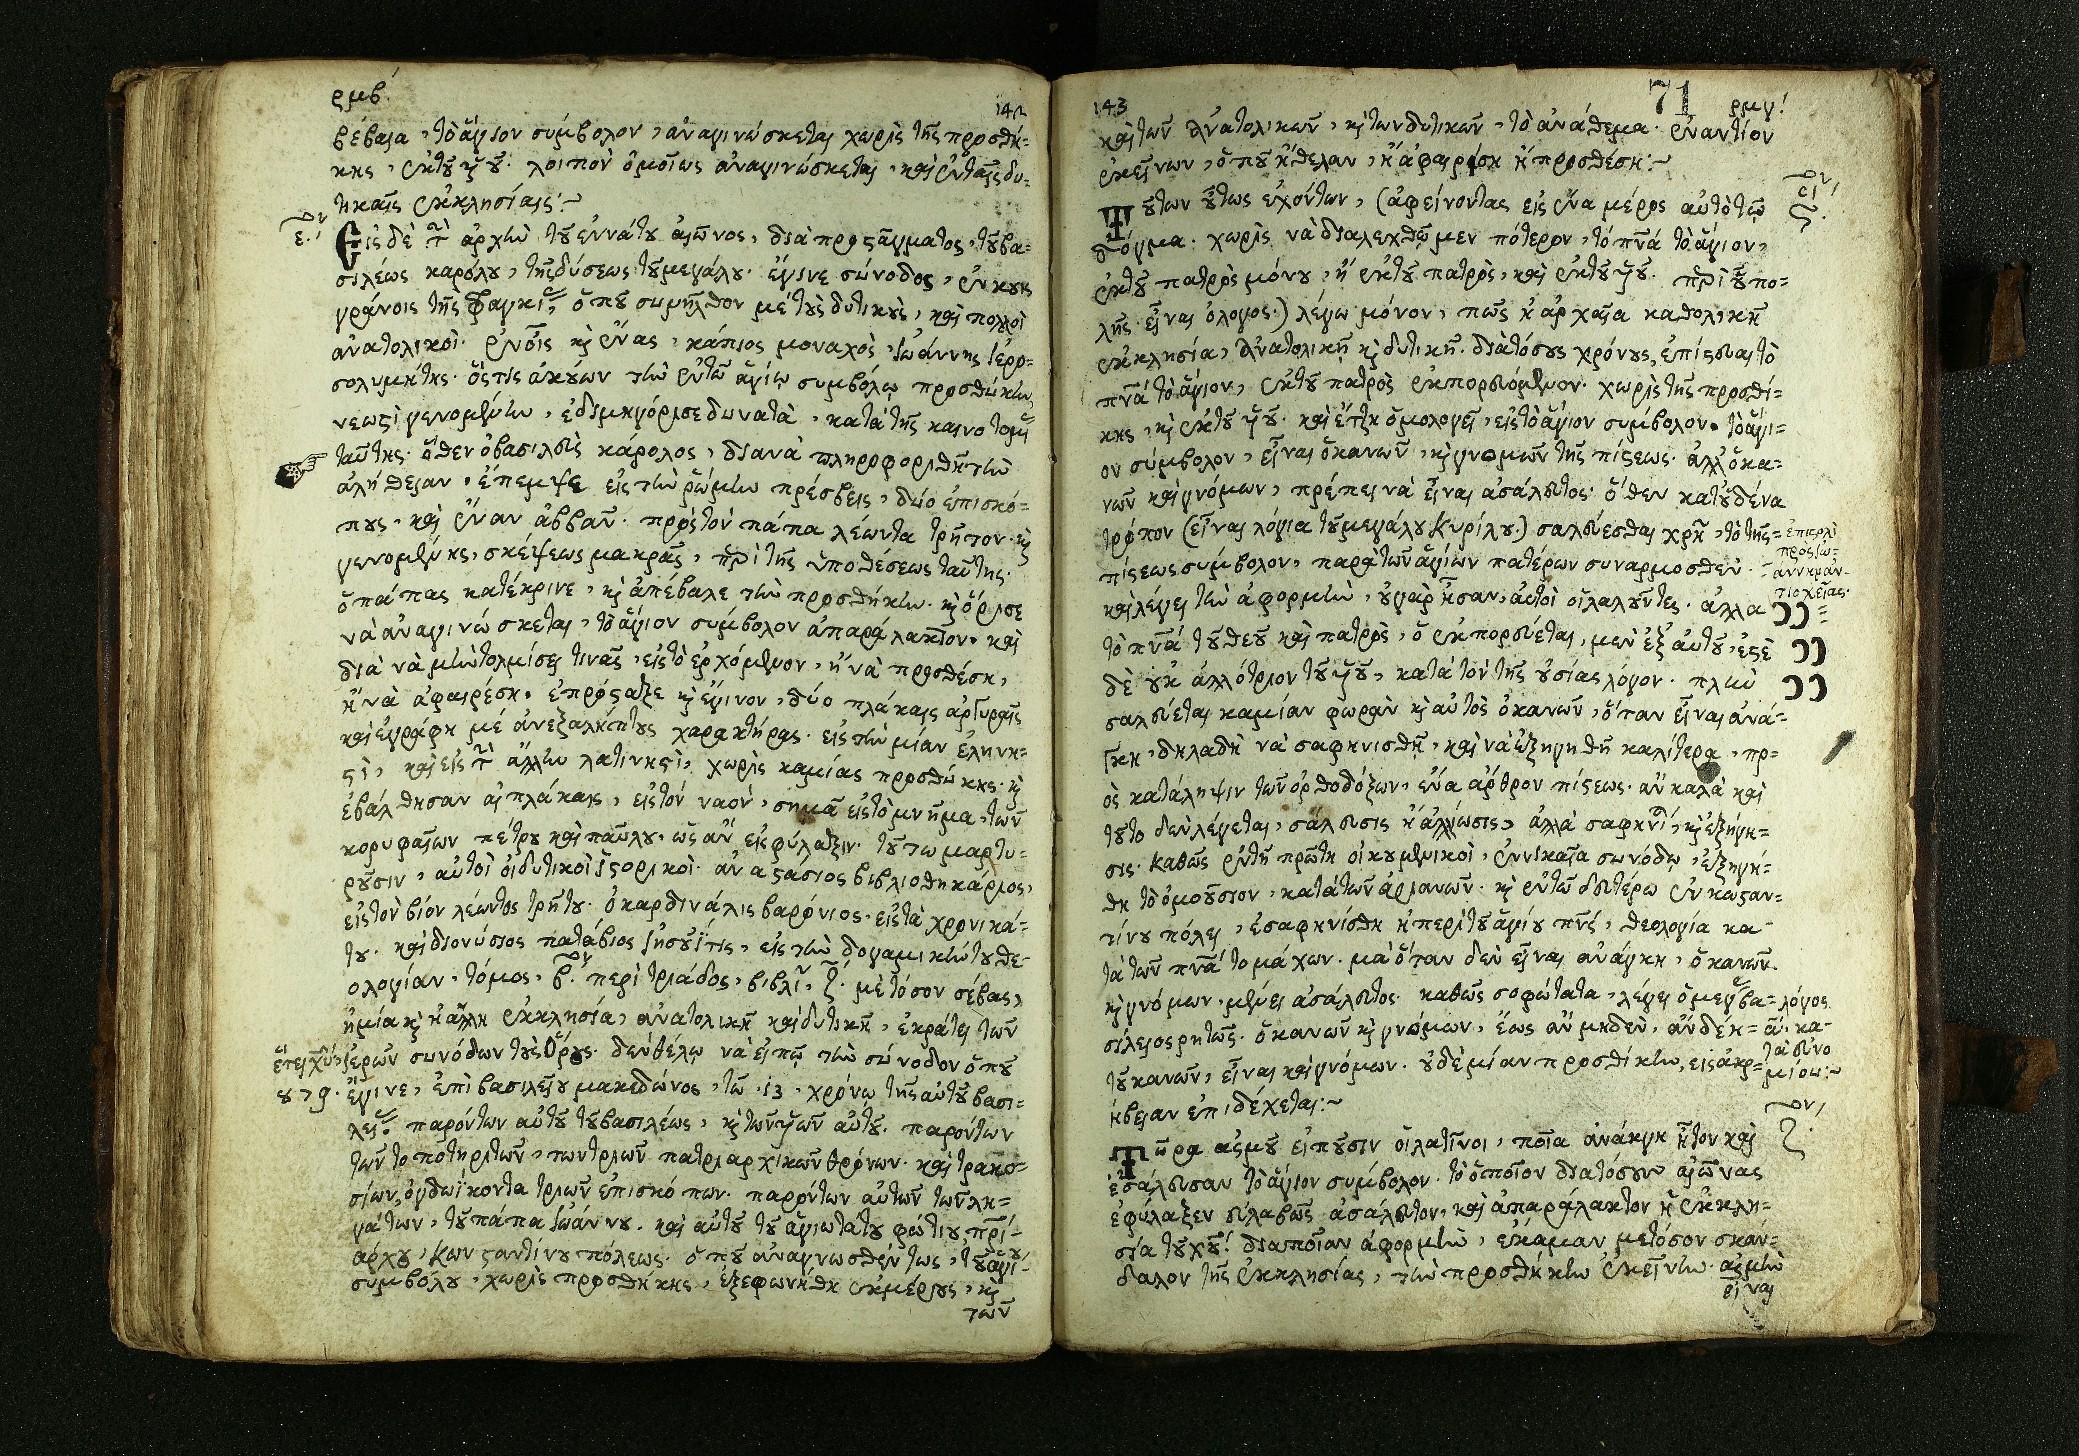 ρμβ΄
142
βέβαια, τὸ ἅγιον σύμβολον, ἀναγινώσκεται χωρὶς τῆς προσθή-
κης, ἐκ τοῦ υἱοῦ. λοιπὸν ὁμοίως ἀναγινώσκεται, καὶ ἐν ταῖς δυ-
τικαῖς ἐκκλησίαις:~
ε΄ον
Εἰς δὲ τὴν ἀρχὴν τοῦ ἐννάτου αἰῶνος, διὰ προστάγματος, τοῦ βα-
σιλέως καρόλου, τῆς δύσεως τοῦ μεγάλου. ἔγινε σύνοδος, ἐν κουης
γράνοις τῆς φραγκίας, ὁποῦ συμῆλθον μὲ τοὺς δυτικοὺς, καὶ πολλοὶ
ἀνατολικοί. ἐν οἷς κὶ ἕνας, κάπιος μοναχὸς, Ἰωάννης Ἱερο-
σολυμήτης. ὅστις ἀκούων τὴν ἐν τῷ ἁγίῳ συμβόλῳ προσθήκην,
νεωστὶ γενομένην, ἐδιμηγόρισε δυνατὰ, κατὰ τῆς καινοτομί
ταύτης. ὅθεν ὁ βασιλεὺς κάρολος, διὰ νὰ πληροφοριθῇ τὴν
ἀλήθειαν, ἔπεμψε εἰς τὴν ῥώμην πρέσβεις, δύο ἐπισκό-
πους, καὶ ἕναν ἀββᾶν. πρὸς τὸν πάπα λέωντα τρῆτον. κὶ
γενομένης, σκέψεως μακρᾶς, περὶ τῆς ὑποθέσεως ταύτης.
ὁ πάπας κατέκρινε, κὶ ἀπέβαλε τὴν προσθήκην. κὶ ὅρισε
νὰ ἀναγινώσκεται, τὸ ἅγιον σύμβολον ἀπαράλακτον. καὶ
διὰ νὰ μὴν τολμίσει τινᾶς, εἰς τὸ ἐρχόμενον, ἢ νὰ προσθέση,
ἢ νὰ ἀφαιρέση. ἐπρόσταξε κὶ ἔγινον, δύο πλάκαις ἀργυραῖς
καὶ ἐγράφη μὲ ἀνεξαλήπτους χαρακτήρας. εἰς τὴν μίαν ἑληνι-
στὶ, καὶ εἰς τὴν ἄλλην λατινηστὶ, χωρὶς καμίας προσθήκης. κὶ
ἐβάλθησαν αἱ πλάκαις, εἰς τὸν ναὸν, σημᾶ εἰς τὸ μνῆμα, τῶν
κορυφαίων πέτρου καὶ παύλου. ὡς ἂν εἰς φύλαξιν. τοῦτω μαρτυ-
ροῦσιν, αὐτοὶ οἱ δυτικοὶ ἱστορικοὶ. ἀναστάσιος βιβλιοθηκάριος,
εἰς τὸν βίον λέωντος τρήτου. ὁ καρδινάλις βαρόνιος. εἰς τὰ χρονικά-
του. καὶ διονύσιος πατάβιος Ἰησουΐτις, εἰς τὴν δογαμικήν του θε-
ολογίαν. τόμος, β΄ον. περὶ τριάδος, βιβλί, ζ΄. μὲ τόσον σέβας,
ἡ μία κὶ ἡ ἄλλη ἐκκλησία, ἀνατολικὴ καὶ δυτικὴ, ἐκράτει τῶν
ἱερῶν συνόδων τοὺς ὅρους. δὲν θέλω νὰ εἰπῶ τὴν σύνοδον ὁποῦ
879.
ἔγινε, ἐπὶ βασιλείου μακεδώνος, τῷ ·13· χρόνῳ τῆς αὐτοῦ βασι-
λείας. παρόντων αὐτοῦ τοῦ βασιλέως, κὶ τῶν υἱῶν αὐτοῦ. παρόντων
τῶν τοποτηριτῶν, των τριῶν πατριαρχικῶν θρόνων. καὶ τρακο-
σίων, ὀγδωΐκοντα τριῶν ἐπισκόπων. παρόντων αὐτῶν τῶν λη-
γάτων, τοῦ πάπα Ἰωάννου. καὶ αὐτοῦ τοῦ ἁγιωτάτου φωτίου, πρι-
άρχου, Κωνσταντίνου πόλεως. ὁποῦ ἀναγνωσθέντως, τοῦ ἁγίου
συμβόλου, χωρὶς προσθήκης, ἐξεφωνήθη ἐκ μέρους, κὶ
τῶν
143
71
ρμγ΄
καὶ τῶν ἀνατολικῶν, κὶ των δυτικῶν, τὸ ἀνάθεμα. ἐναντίον
ἐκείνων, ὁποῦ ἤθελαν, ἢ ἀφαιρέση ἢ προσθέση:~
ϛ΄ον
Τούτων οὕτως ἐχόντων, (ἀφείνοντας εἰς ἕνα μέρος αὐτὸ τῷ
δόγμα. χωρὶς νὰ διαλεχθῶμεν πότερον, τὸ πνᾶ τὸ ἅγιον,
ἐκ τοῦ πατρὸς μόνου, ἢ ἐκ τοῦ πατρὸς, καὶ ἐκ τοῦ υἱοῦ. περὶ οὗ πο-
λῆς εἶναι ὁ λογος.) λέγω μόνον, πῶς ἡ ἀρχαῖα καθολικὴ
ἐκκλησία, ἀνατολικὴ κὶ δυτικὴ. διὰ τόσους χρόνους, ἐπίστευε τὸ
πνᾶ τὸ ἅγιον, ἐκ τοῦ πατρὸς ἐκπορευόμενον. χωρὶς τῆς προσθί-
κης, κὶ ἐκ τοῦ υἱοῦ. καὶ ἔτζη ὁμολογεῖ, εἰς τὸ ἅγιον σύμβολον. τὸ ἅγι-
ον σύμβολον, εἶναι ὁ κανὼν, κὶ γνομῶν τῆς πίστεως. ἀλλ' ὁ κα-
νὼν καὶ γνόμων, πρέπει νὰ εἶναι ἀσάλευτος. ὅθεν κατ' οὐδένα
τρόπον (εἶναι λόγια τοῦ μεγάλου Κυρίλου.) σαλεύεσθαι χρὴ, τὸ τῆς-
πίστεως σύμβολον, παρὰ τῶν ἁγίων πατέρων συναρμοσθέν.
ἐπιστολὶ
πρὸς ἰω-
άννην ἀν-
τιοχείας.
καὶ λέγει τὴν ἀφορμὴν, οὐ γὰρ ἦσαν, αὐτοὶ οἱ λαλοῦντες. ἀλλα
τὸ πνᾶ τοῦ θεοῦ καὶ πατρὸς, ὃ ἐκπορεύεται, μὲν ἐξ αὐτοῦ, ἐστὶ
δὲ οὐκ ἀλλότριον τοῦ υἱοῦ, κατὰ τὸν τῆς οὐσίας λόγον. πλὴν
σαλεύεται καμίαν φωρὰν κὶ αὐτὸς ὁ κανὼν, ὅταν εἶναι ἀνά-
γκη, δηλαδὴ νὰ σαφηνισθῇ, καὶ νὰ ἐξηγηθῇ καλίτερα, πρ-
ὸς κατάληψιν τῶν ὀρθοδόξων, ἕνα ἄρθρον πίστεως. ἂν καλὰ καὶ
τοῦτο δεν λέγεται, σάλευσις ἢ ἀλλίωσις, ἀλλὰ σαφηνι, κὶ ἐξήγη-
σις. καθὼς ἐν τῇ πρώτη οἰκουμενικοὶ, ἐν νικαία συνόδῳ, ἐξηγή-
θη τὸ ὁμοούσιον, κατὰ τῶν ἀριανῶν. κὶ ἐν τῷ δευτέρω ἐν κωσταν-
τίνου πόλει, ἐσαφηνίσθη ἡ περὶ τοῦ ἁγίου πνς, θεολογία κα-
τὰ τῶν πνᾶτομάχων. μὰ ὅταν δὲν εἶναι ἀνάγκη, ὁ κανὼν
κὶ γνόμων, μένει ἀσάλευτος. καθὼς σοφώτατα, λέγει ὁ μέγας βα-
σίλειος ρητῶς. ὁ κανὼν κὶ γνόμων, ἕως ἂν μηδὲν, ἀνδέη-
τοῦ κανὼν, εἶναι καὶ γνόμων. οὐδὲμίαν προσθίκην, εἰς ἀκρ-
ήβειαν ἐπιδέχεται:~
λόγος
α΄. κα-
τὰ εὐνο
μίου:~
ζ΄ον
Τῶρα ἀςμοῦ εἰποῦσιν οἱ λατῖνοι, ποῖα ἀνάκγη ἦτον καὶ
ἐσάλευσαν τὸ ἅγιον σύμβολον. τὸ ὁποῖον διὰ τόσουν αἰῶνας
ἐφύλαξεν εὐλαβῶς ἀσάλευτον, καὶ ἀπαράλακτον ἡ ἐκκλη-
σία τοῦ χυ΄. διὰ ποῖαν ἀφορμὴν, ἐκάμαν μετόσον σκάν-
δαλον τῆς ἐκκλησίας, τὴν προσθήκην ἐκείνην. ἀςμὴν
εἶναι